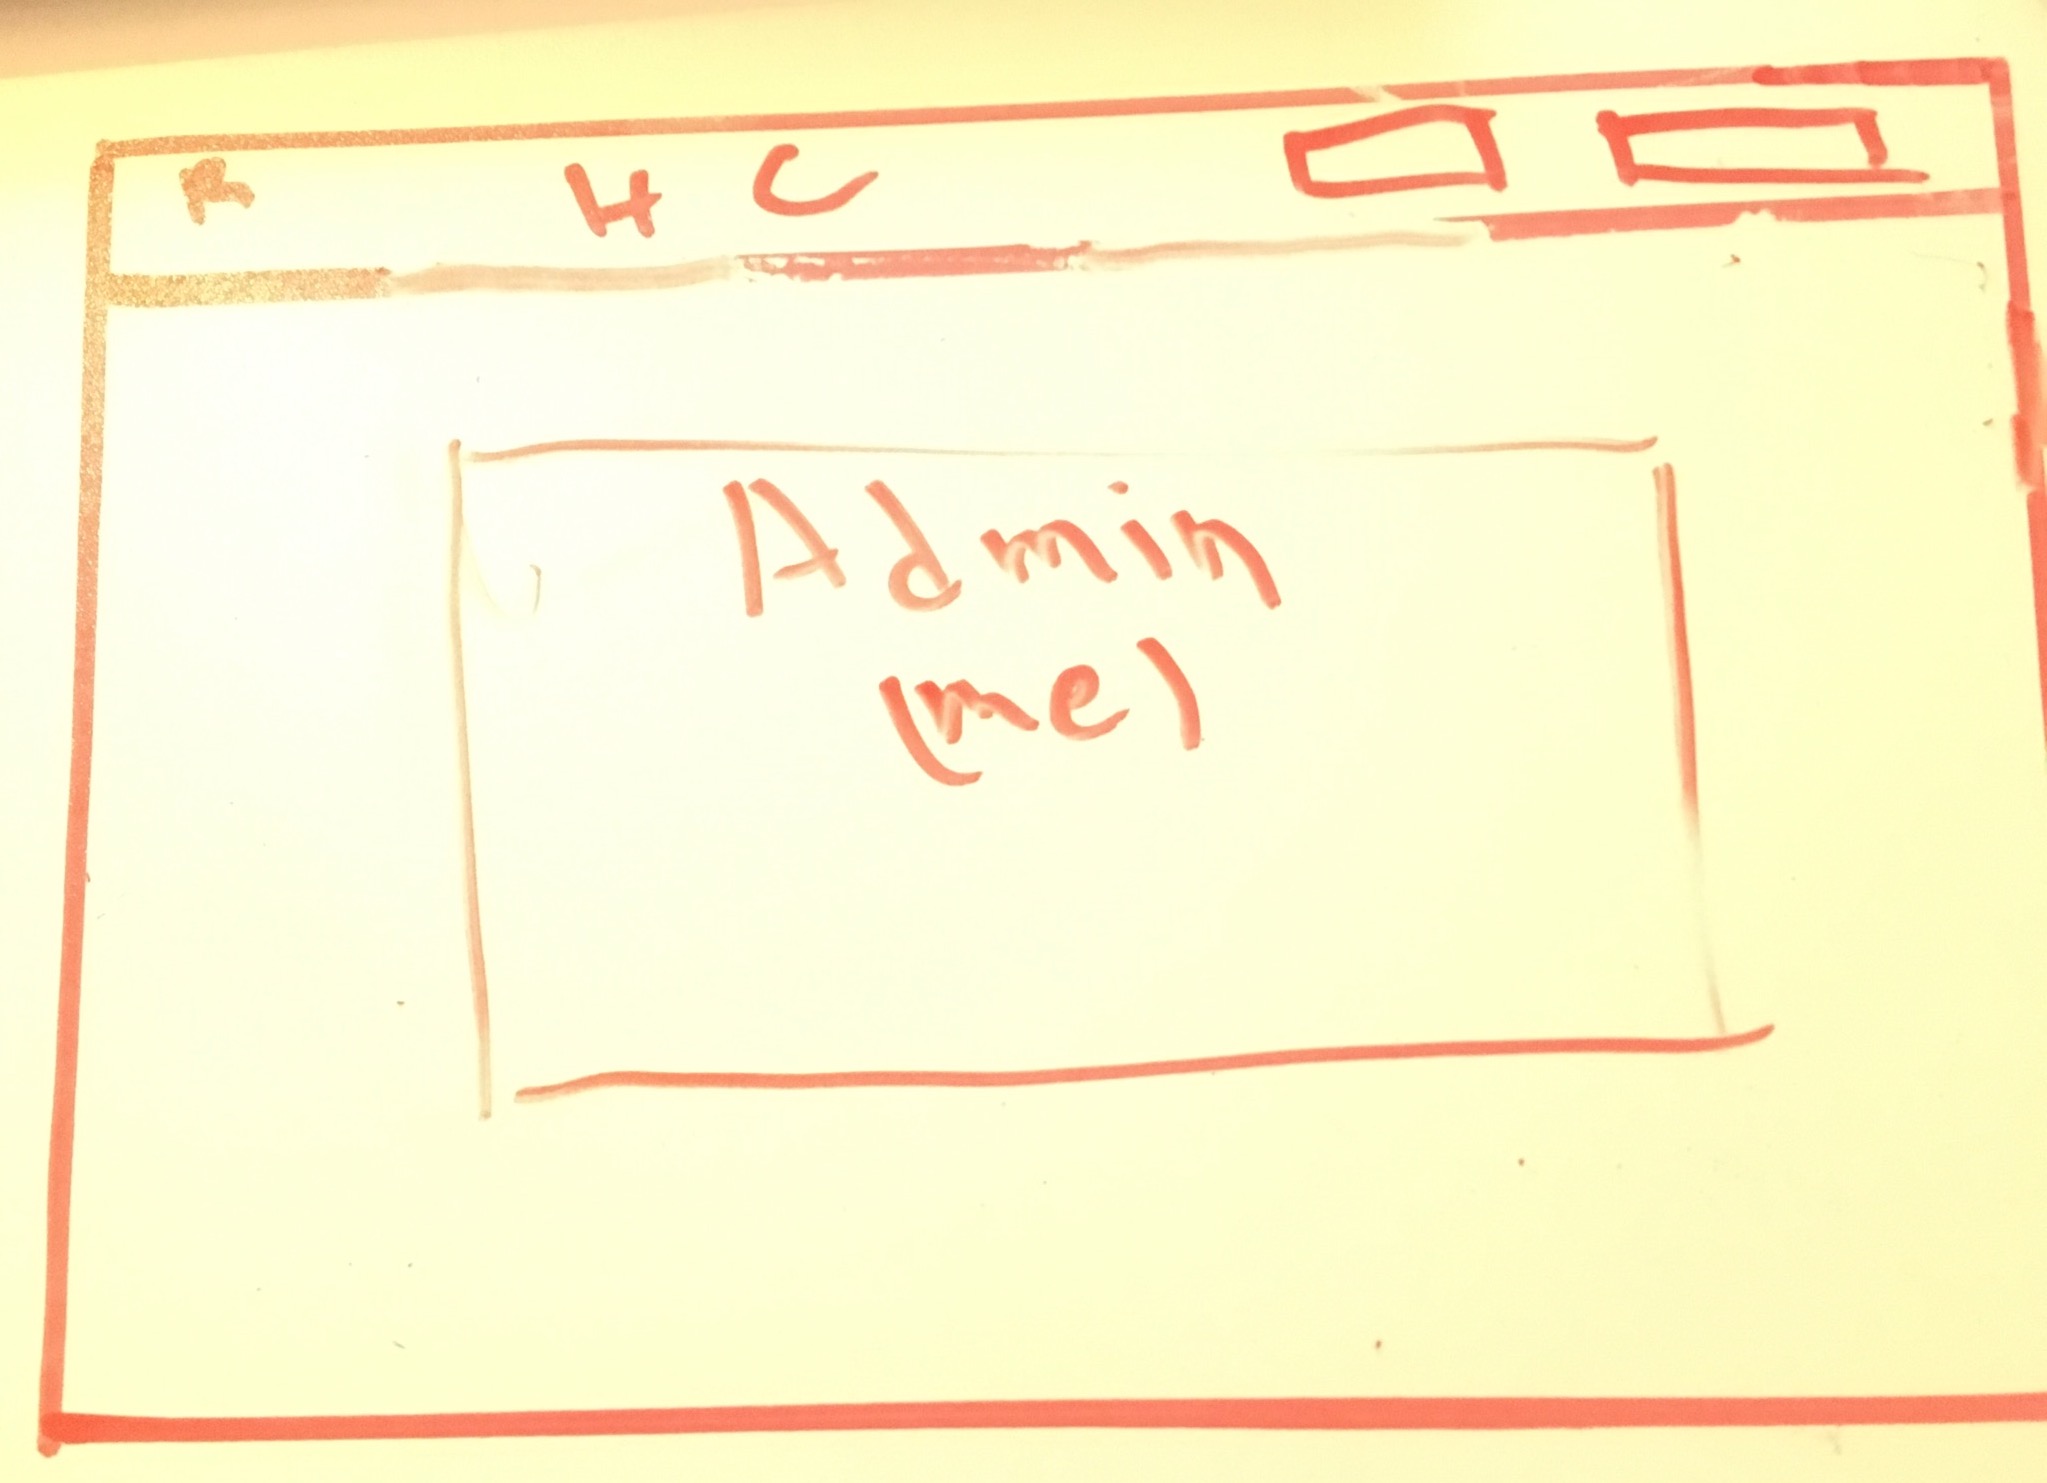 R H C
Admin
(me)